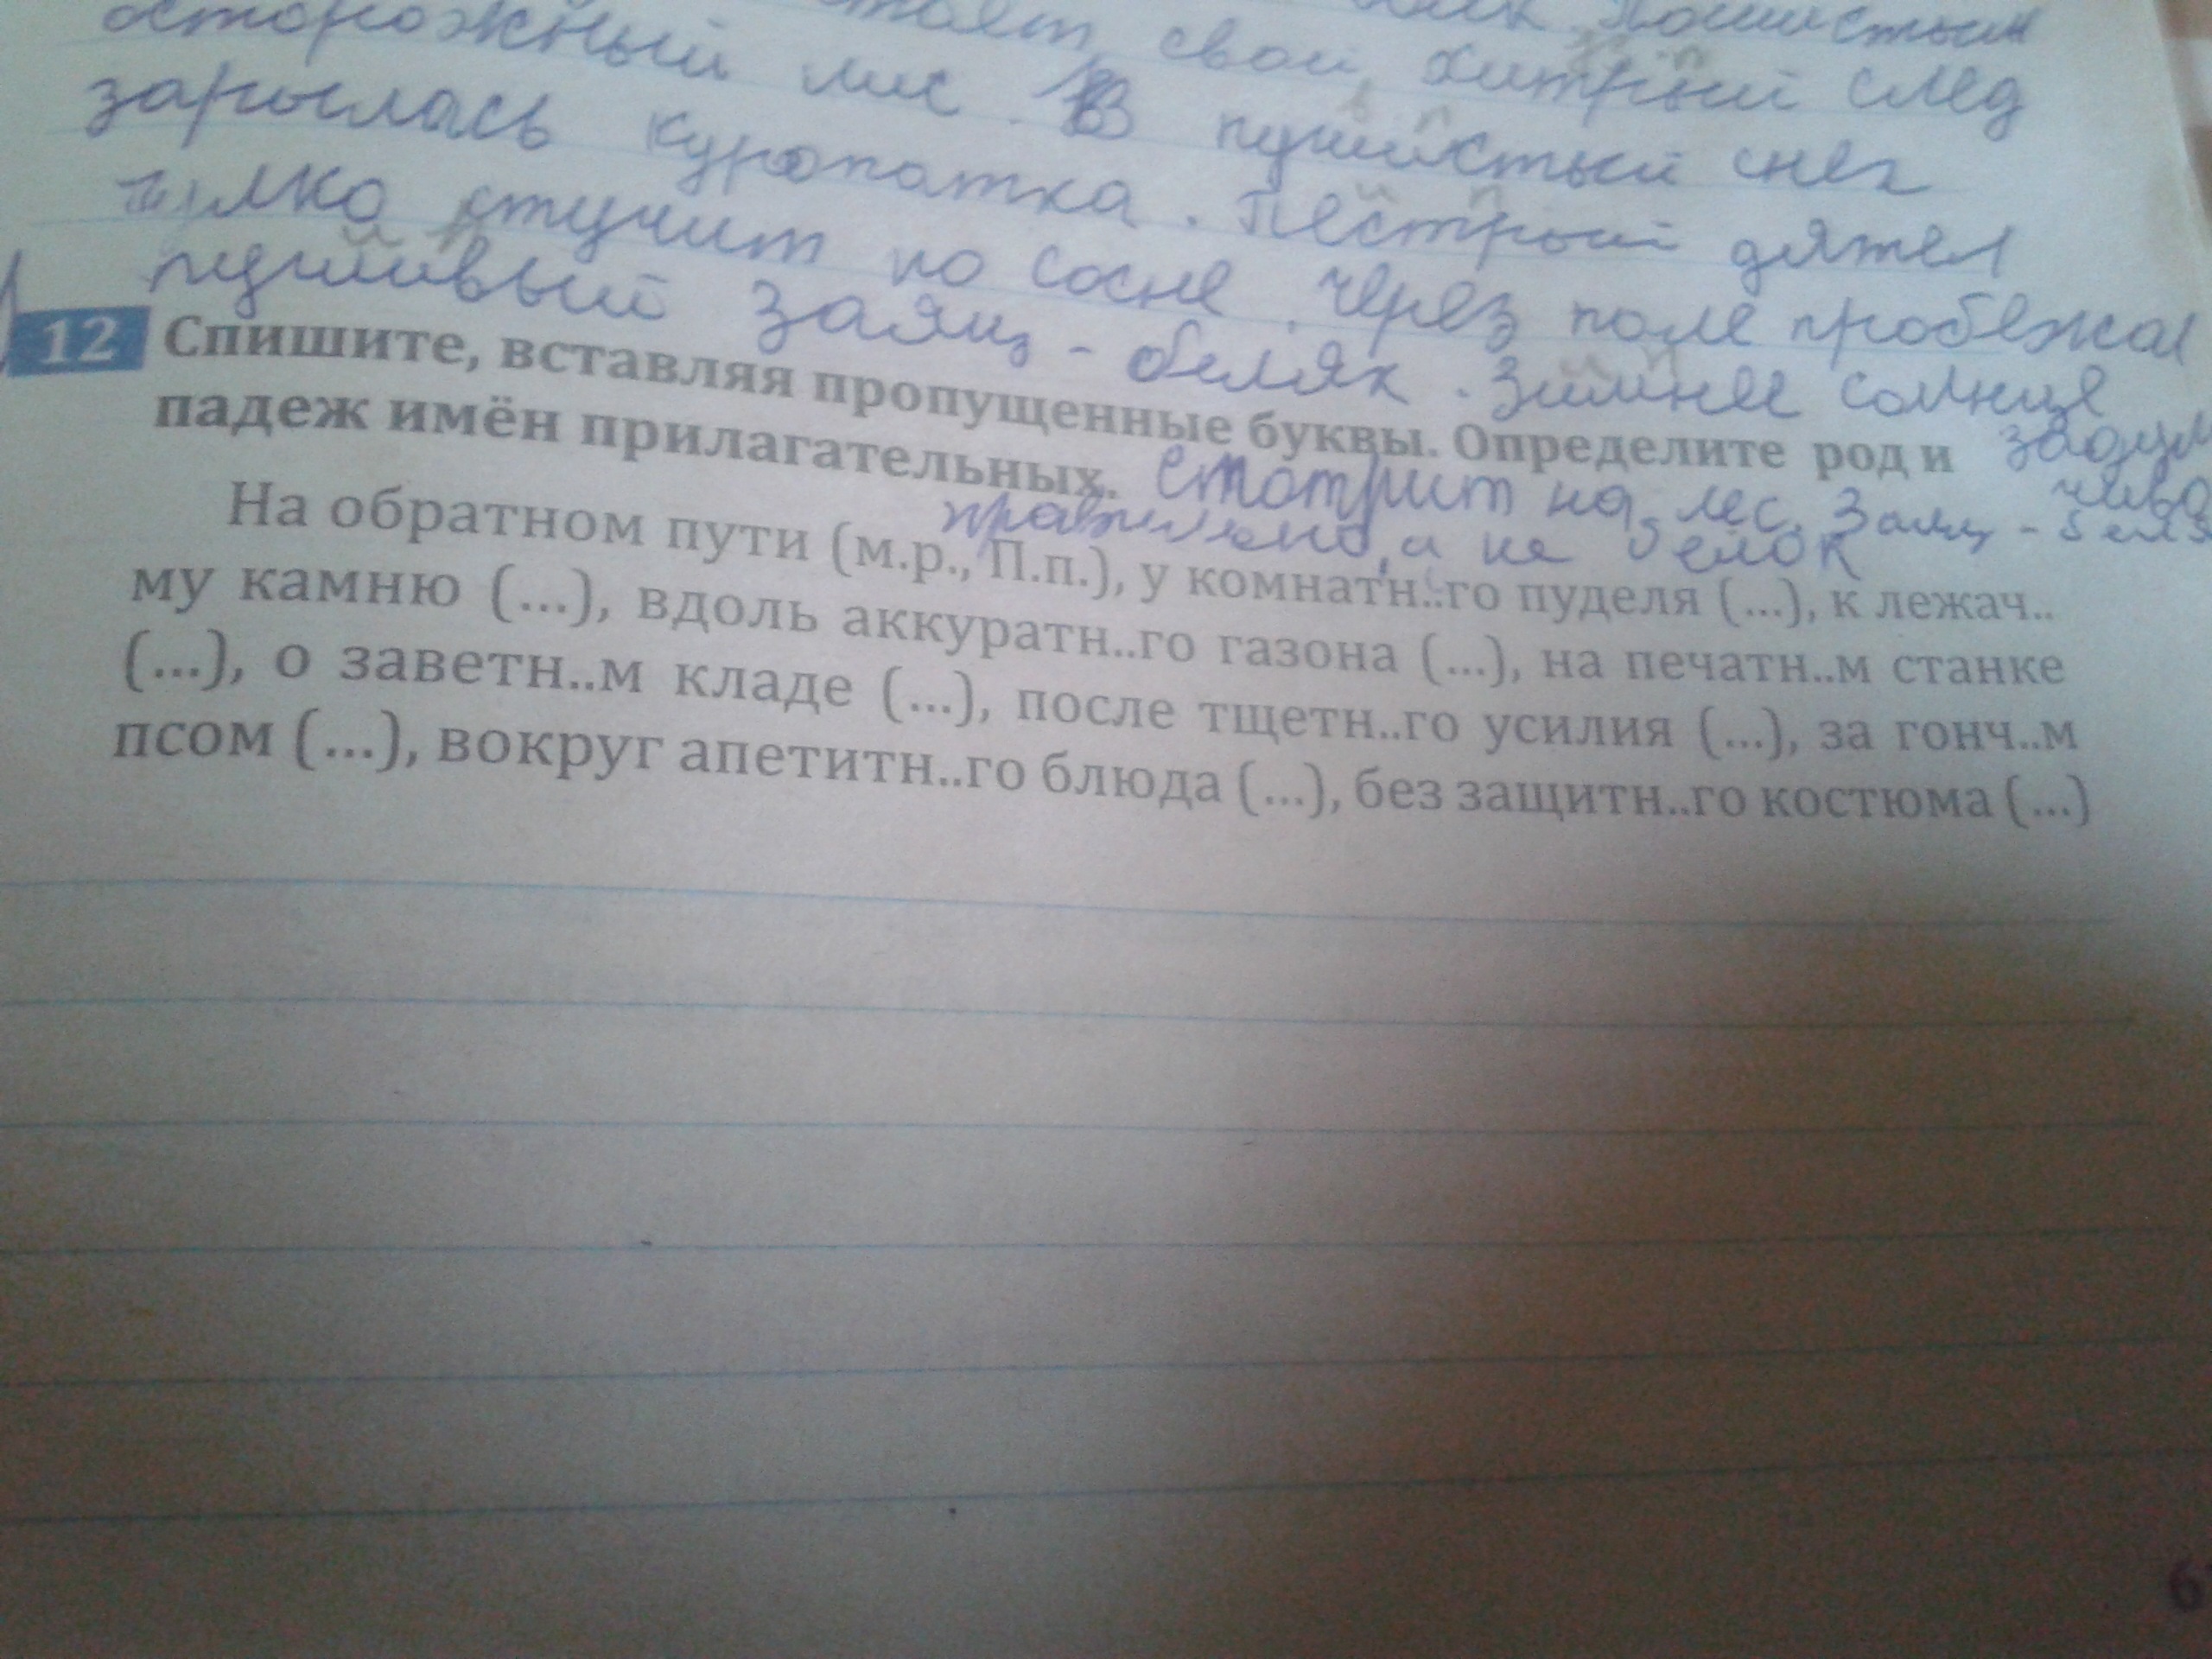 осторожный лис. В свой хитрый след
зарылась куропатка. В пушистый снег
стучит по сосне. Пёстрый дятел
пугливый заяц - беляк. Через поле пробежал
Зимнее солнце
12 Спишите, вставляя пропущенные буквы. Определите род и
падеж имён прилагательных. смотрит на лес. Заяц -
правильно, а не белок
На обратном пути (м.р., П.п.), у комнатн..го пуделя (...), к лежач..
му камню (...), вдоль аккуратн..го газона (...), на печатн..м станке
(...), о заветн..м кладе (...), после тщетн..го усилия (...), за гонч..м
псом (...), вокруг апетитн..го блюда (...), без защитн..го костюма (...)